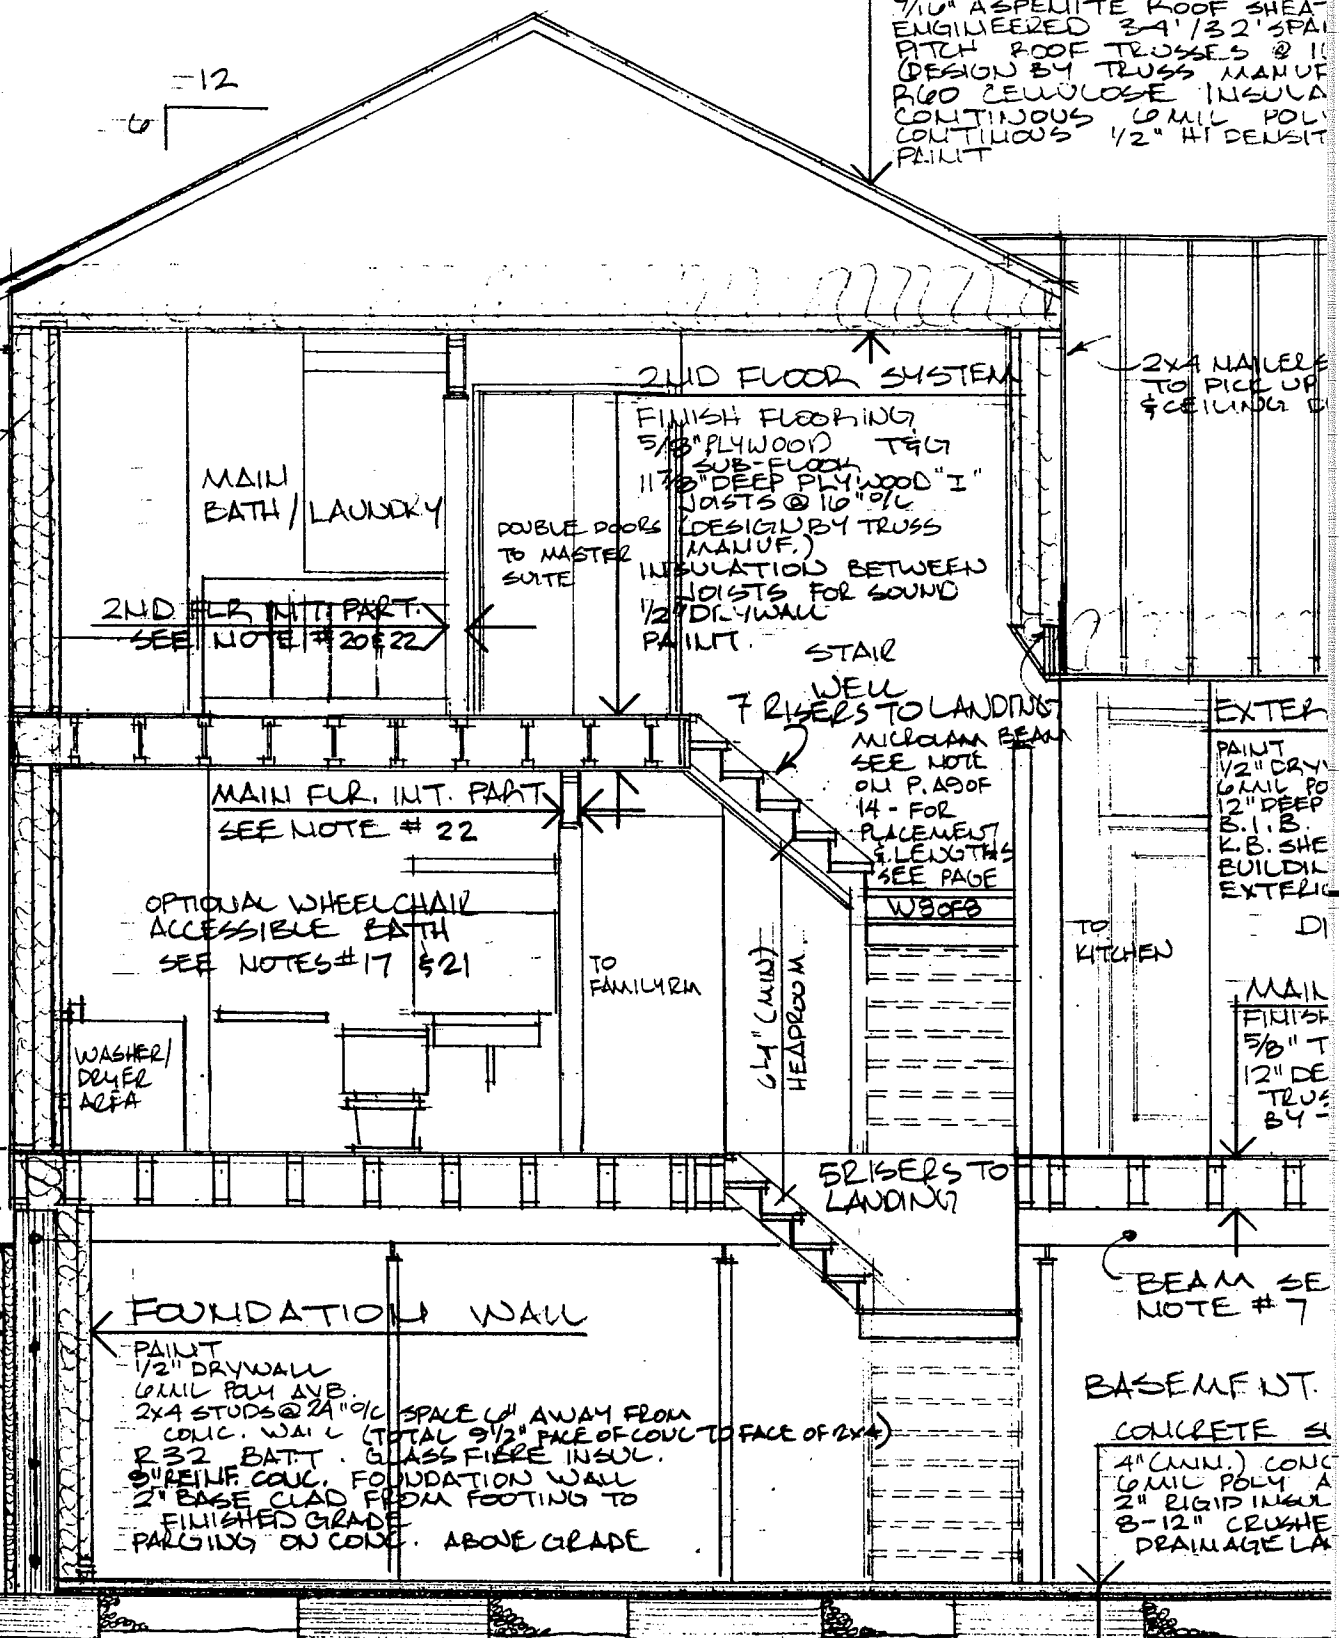 7/16" ASPENITE ROOF SHEA
ENGINEERED 3-4'/32' SPA
PITCH ROOF TRUSSES @
(DESIGN BY TRUSS MANUF
R60 CELLULOSE INSULA
CONTINOUS 6 MIL POLY
CONTINOUS 1/2" HI DENSIT
PAINT
12
6
2x4 NAILERS
TO PICK UP
& CEILING
2ND FLOOR SYSTEM
FINISH FLOORING
5/8" PLYWOOD T&G
SUB-FLOOR
11 7/8" DEEP PLYWOOD "I"
JOISTS @ 16" O/C
(DESIGN BY TRUSS
MANUF.)
INSULATION BETWEEN
JOISTS FOR SOUND
1/2" DRYWALL
PAINT.
MAIN
BATH / LAUNDRY
DOUBLE DOORS
TO MASTER
SUITE
2ND FLR INT. PART.
SEE NOTE # 20 & 22
STAIR
WELL
7 RISERS TO LANDING
MICROLAM BEAM
SEE NOTE
ON P. A9 OF
14 - FOR
PLACEMENT
& LENGTHS
SEE PAGE
W8 OF 8
EXTER
PAINT
1/2" DRY
6 MIL PO
12" DEEP
B.I.B.
K.B. SHE
BUILDIN
EXTERIO
DI
MAIN FLR. INT. PART
SEE NOTE # 22
OPTIONAL WHEELCHAIR
ACCESSIBLE BATH
SEE NOTES #17 & 21
TO
FAMILY RM
6'-4" (MIN)
HEADROOM.
TO
KITCHEN
MAIN
FINISH
5/8" T
12" DE
TRUS
BY
WASHER/
DRYER
AREA
5 RISERS TO
LANDING
BEAM SE
NOTE # 7
FOUNDATION WALL
PAINT
1/2" DRYWALL
6 MIL POLY AVB.
2x4 STUDS @ 24" O/C SPACE 6" AWAY FROM
CONC. WALL (TOTAL 9 1/2" FACE OF CONC TO FACE OF 2x4)
R 32 BATT. GLASS FIBRE INSUL.
8" REINF CONC. FOUNDATION WALL
2" BASE CLAD FROM FOOTING TO
FINISHED GRADE
PARGING ON CONC. ABOVE GRADE
BASEMENT.
CONCRETE SL
4" (MIN.) CONC
6 MIL POLY A
2" RIGID INSUL
8-12" CRUSHE
DRAINAGE LA